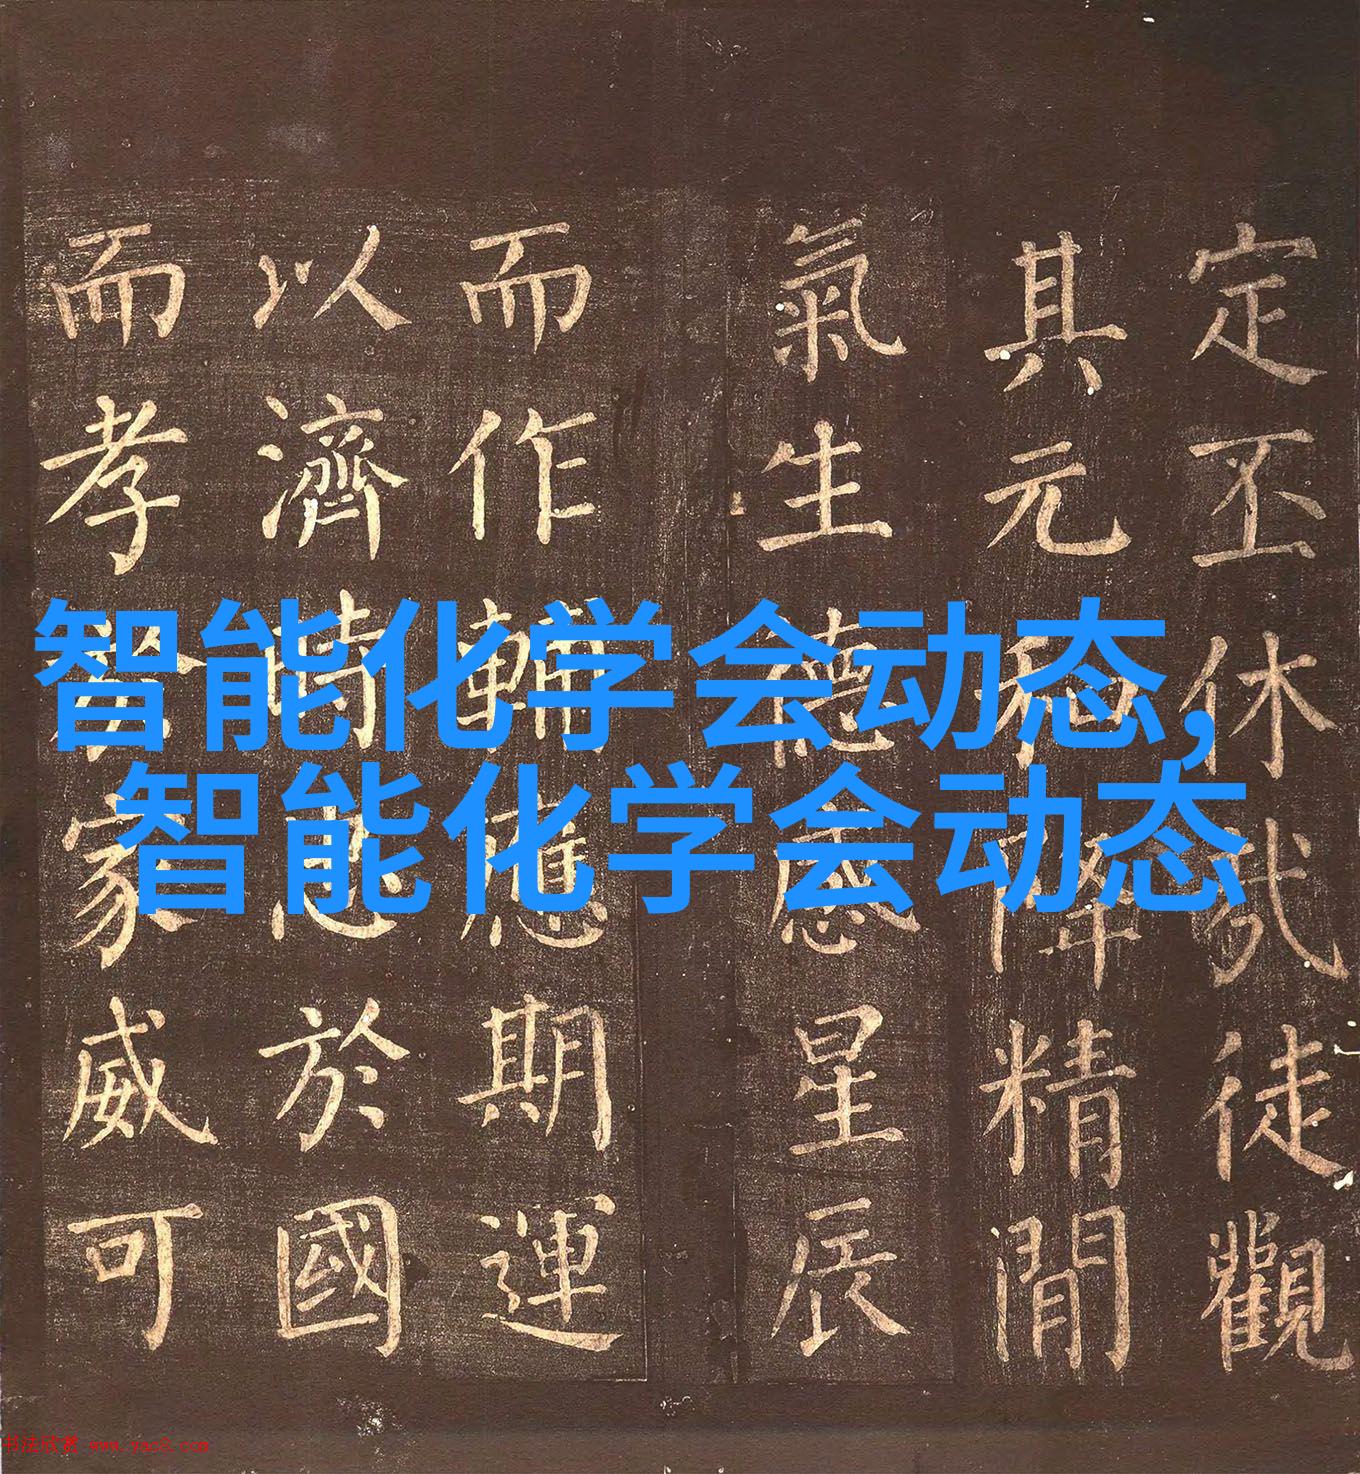 智能化学会动态,
智能化学会动态
定丕休哉徒觀
其元和降精閒
氣生德感星辰
而作輔應期運
以濟時忠於國
而孝於家威可
书法欣赏 www.yac8.com